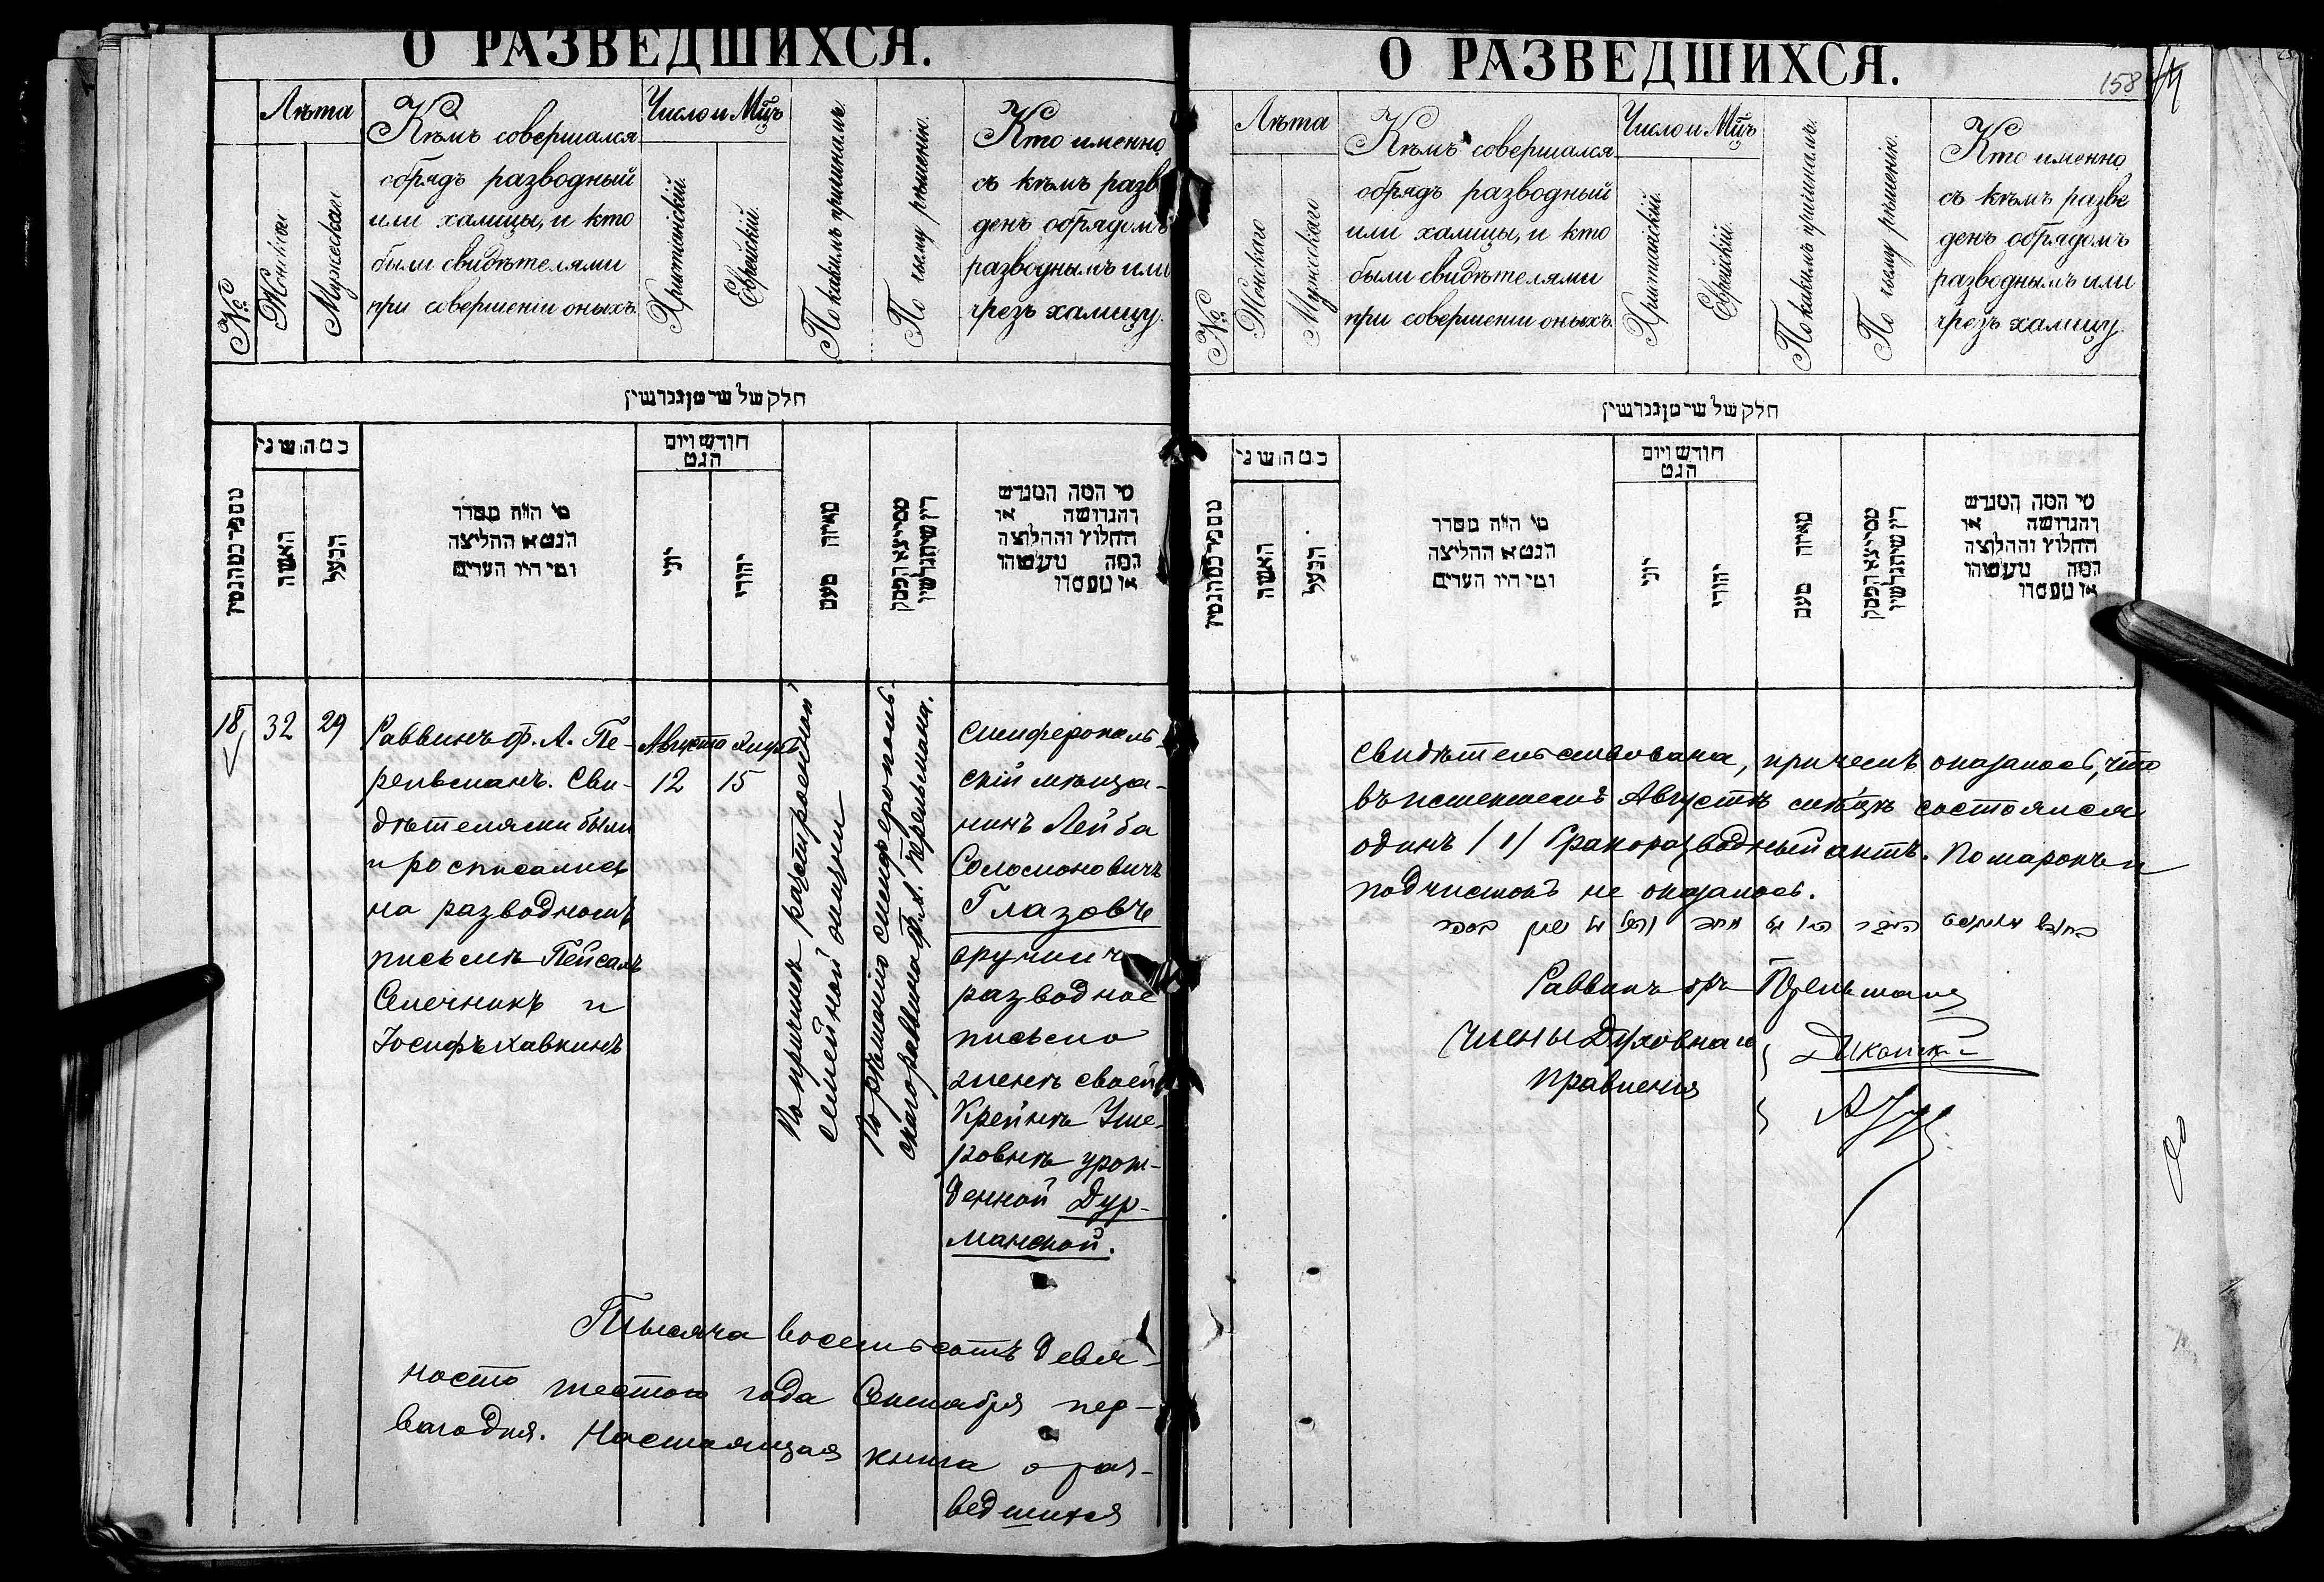 О РАЗВЕДШИХСЯ.
№
Лѣта
Женская
Мужеская
Кѣмъ совершался
обрядъ разводный
или халицы, и кто
были свидѣтелями
при совершеніи оныхъ.
Число и Мѣцъ
Христіанскій.
Еврейскій.
По какимъ причинамъ.
По чьему рѣшенію.
Кто именно
съ кѣмъ разве
денъ обрядомъ
разводнымъ или
чрезъ халицу.
חלק של שי מן גנרשין
האשה
הבעל
מי היה מסדר
הגט או החליצה
ומי היו העדים
חודש ויום
הגט
יוני
יהודי
מאיזה טעם
מי המה המגרש
והגרושה או
החולץ והחלוצה
המה מעשהו
או מעמדו
18
32
29
Раввинъ ф. А. Пе-
рельманъ. Сви-
дѣтелями были
и росписались
на разводномъ
письмѣ Пейсахъ
Семечникъ и
Іосифъ Хавкинъ
Августа Элулъ
12 15
По причинѣ разстроенной
семейной жизни
По рѣшенію симферополь-
скаго раввина Ф. А. Перельмана.
Симферополь-
скій мѣща-
нинъ Лейба
Соломоновичъ
Глазовъ
вручилъ
разводное
письмо
женѣ своей
Крейнѣ Уше-
ровнѣ урож-
денной Дур-
манской.
Тысяча восемьсотъ девя-
носто шестого года Сентября пер-
ваго дня. Настоящая книга о раз-
ведшихся
О РАЗВЕДШИХСЯ.
158
№
Лѣта
Женскаго
Мужскаго
Кѣмъ совершался
обрядъ разводный
или халицы, и кто
были свидѣтелями
при совершеніи оныхъ.
Число и Мѣцъ
Христіанскій.
Еврейскій.
По какимъ причинамъ.
По чьему рѣшенію.
Кто именно
съ кѣмъ разве
денъ обрядомъ
разводнымъ или
чрезъ халицу.
חלק של שי מן גנרשין
האשה
הבעל
מי היה מסדר
הגט או החליצה
ומי היו העדים
חודש ויום
הגט
יוני
יהודי
מאיזה טעם
מי המה המגרש
והגרושה או
החולץ והחלוצה
המה מעשהו
או מעמדו
свидѣтельствована, причемъ оказалось, что
въ истекшемъ Августѣ мѣсяцѣ состоялся
одинъ /1/ бракоразводный актъ. Помарокъ и
подчистокъ не оказалось.
Раввинъ ф. Перельманъ
Члены Духовнаго
Правленія